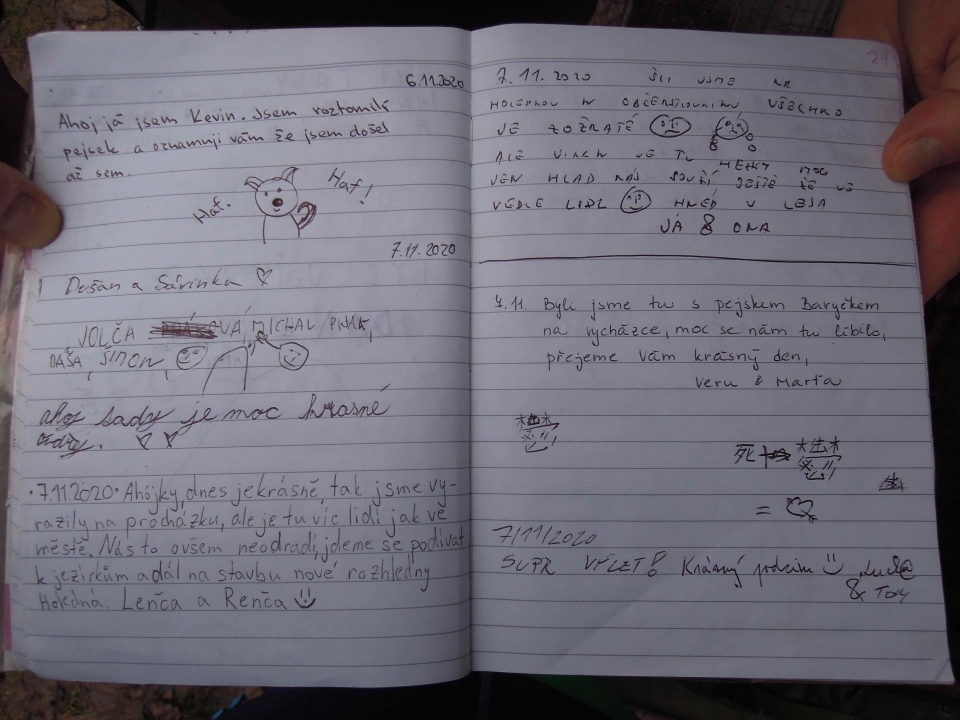 6.11.2020
Ahoj já jsem Kevin. Jsem roztomilí
pejcek a oznamuji vám že jsem došel
až sem.
Haf. Haf!
7.11.2020
Dušan a Sárinka
JOLČA OVÁ, MICHAL
DÁŠA, ŠIMON,
ahoj tady je moc krásné
•7.11.2020• Ahojky, dnes je krásně, tak jsme vy-
razily na procházku, ale je tu víc lidí jak ve
městě. Nás to ovšem neodradí, jdeme se podívat
k jezírkům a dál na stavbu nové rozhledny
Holedná. Lenča a Renča
29
7.11.2020 ŠLI JSME NA
HOLEDNOU K OBČERSTVOVNÍKU VŠECHNO
JE ZOŽRATÉ
ALE JINAK JE TU HEZKY
JEN HLAD NÁS SOUŽÍ JEŠTĚ ŽE JE
VEDLE LIDL HNED U LESA
JÁ & ONA
7.11. Byli jsme tu s pejskem Baryčkem
na vycházce, moc se nám tu líbilo,
přejeme Vám krásný den,
Veru & Marťa
死
=
7/11/2020
SUPR VÝLET! Krásný podzim
& Tom